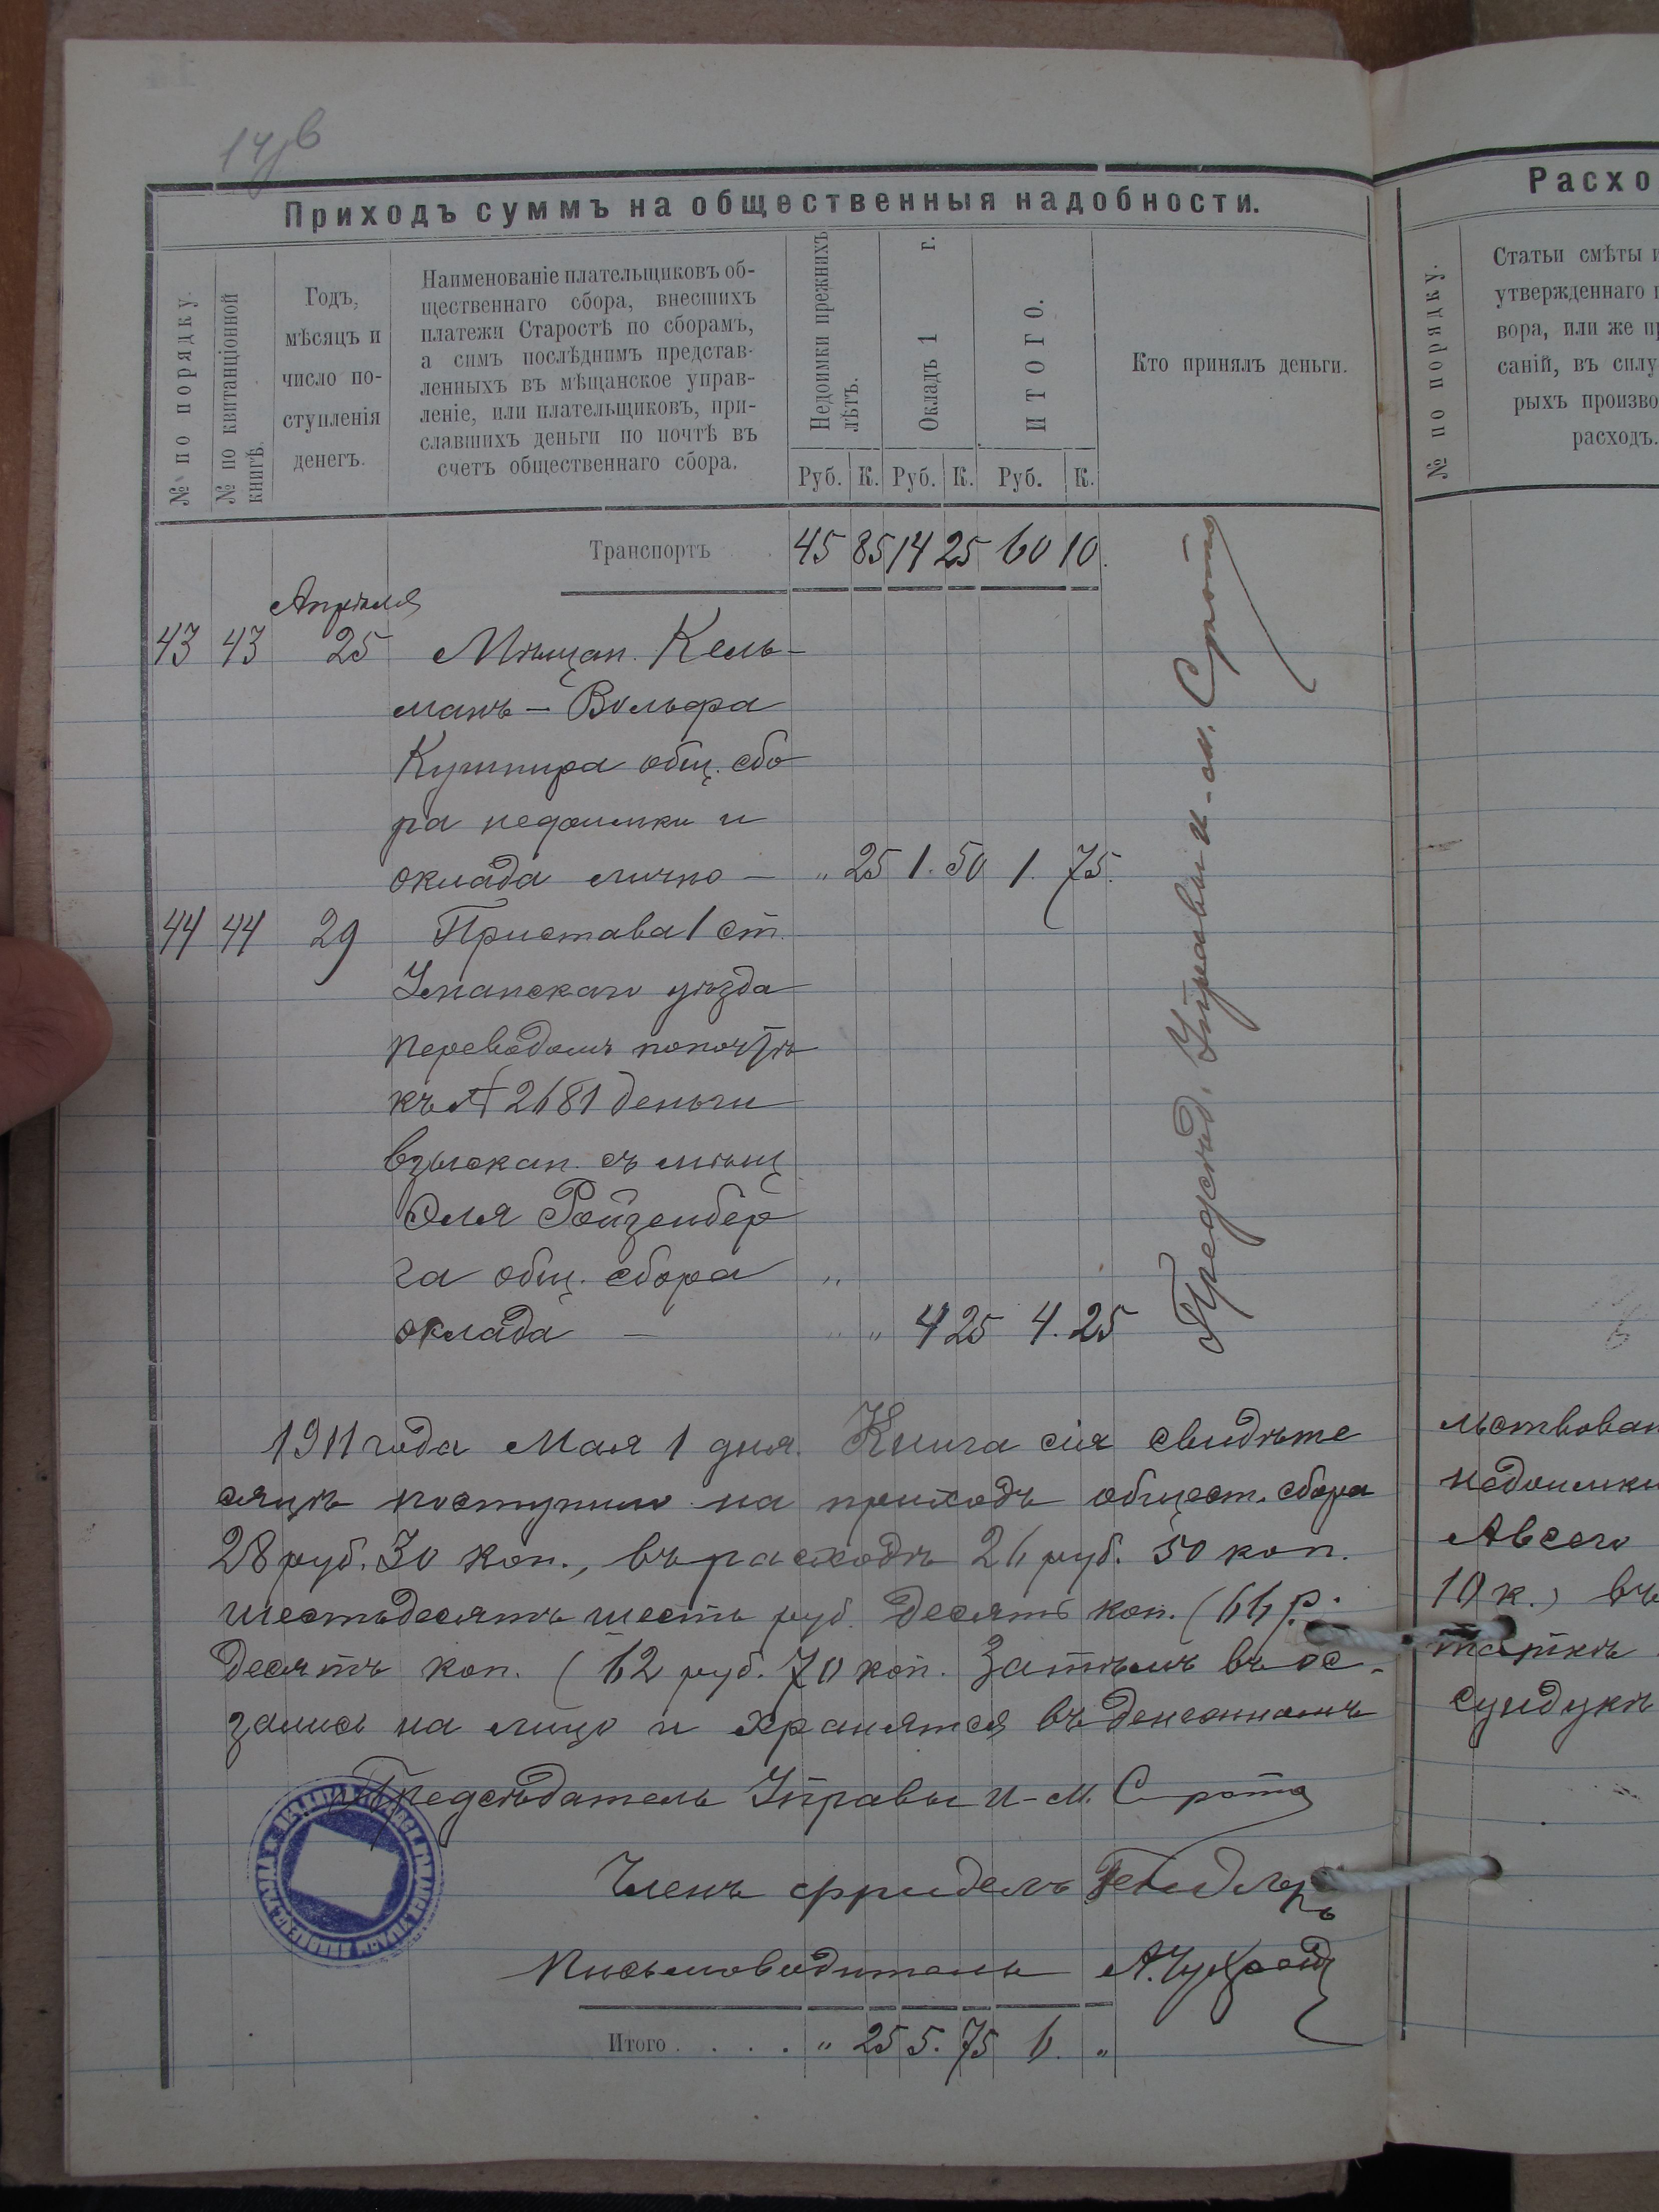 Приходъ суммъ на общественныя надобности.
№ по порядку.
№ по квитанціонной книгѣ.
Годъ,
мѣсяцъ и
число по-
ступленія
денегъ.
Наименованіе плательщиковъ об-
щественнаго сбора, внесшихъ
платежи Старостѣ по сборамъ,
а симъ послѣднимъ представ-
ленныхъ въ мѣщанское управ-
леніе, или плательщиковъ, при-
славшихъ деньги по почтѣ въ
счетъ общественнаго сбора.
Недоимки прежнихъ лѣтъ.
Окладъ 1 г.
ИТОГО.
Кто принялъ деньги.
Руб. К. Руб. К. Руб. К.
Транспортъ 45 85 14 25 60 10.
Апрѣля
43 43 25 Мѣщан. Кель-
манъ - Вольфа
Кушнира общ. сбо
ра недоимки и
оклада лично - " 25 1. 50 1. 75.
44 44 29 Пристава 1 ст.
Уманскаго уѣзда
переводомъ по почтѣ
къ № 2681 деньги
взыскан. съ мѣщ
Эля Ройзенбер
га общ. сбора "
оклада - " 4 25 4. 25
Предсѣд. Управы И-М. Срота
1911 года Мая 1 дня. Книга сія свидѣте
сяцъ поступило на приходъ общест. сбора
28 руб. 30 коп., въ расходъ 26 руб. 50 коп.
шестьдесятъ шесть руб. десять коп. (66 р.
десятъ коп. (62 руб. 70 коп. Затѣмъ въ ос-
зались на лицо и хранятся въ денежномъ
Предсѣдатель Управы И-М. Срота
Членъ Фридель
Письмоводитель А.
Итого . . . . " 25 5. 75 6. "
Расхо
№ по порядку.
Статьи смѣты и
утвержденнаго п
вора, или же пр
саній, въ силу
рыхъ произво
расходъ.
льствован
недоимки
А всего
10 к.) въ
таткѣ
сундукѣ